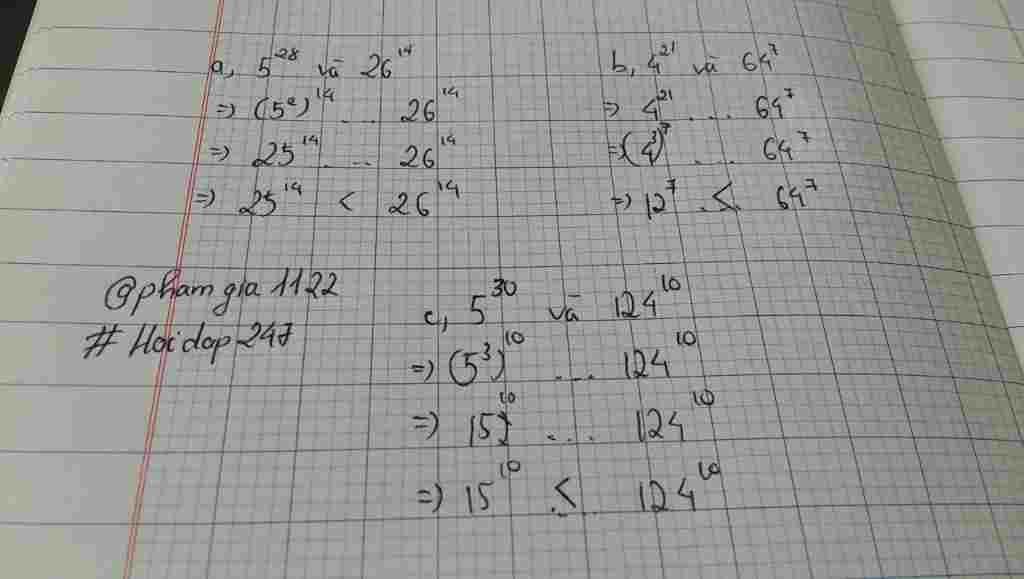 a, 5²⁸ và 26¹⁴
=> (5²)¹⁴ ... 26¹⁴
=> 25¹⁴ ... 26¹⁴
=> 25¹⁴ < 26¹⁴
b, 4²¹ và 64⁷
=> 4²¹ ... 64⁷
=> (4³)⁷ ... 64⁷
=> 12⁷ .<. 64⁷
@phamgia1122
# Hoidap247
c, 5³⁰ và 124¹⁰
=> (5³)¹⁰ ... 124¹⁰
=> 15¹⁰ ... 124¹⁰
=> 15¹⁰ .<. 124¹⁰